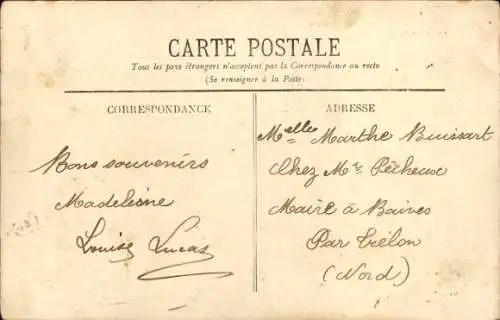 CARTE POSTALE
Tous les pays étrangers n'acceptent pas la Correspondance au recto
(Se renseigner à la Poste)
CORRESPONDANCE
Bons souvenirs
Madeleine
Louise Lucas
ADRESSE
Melle Marthe Buissart
Chez Mr Pêcheux
Maire à Baives
Par Trélon
(Nord)